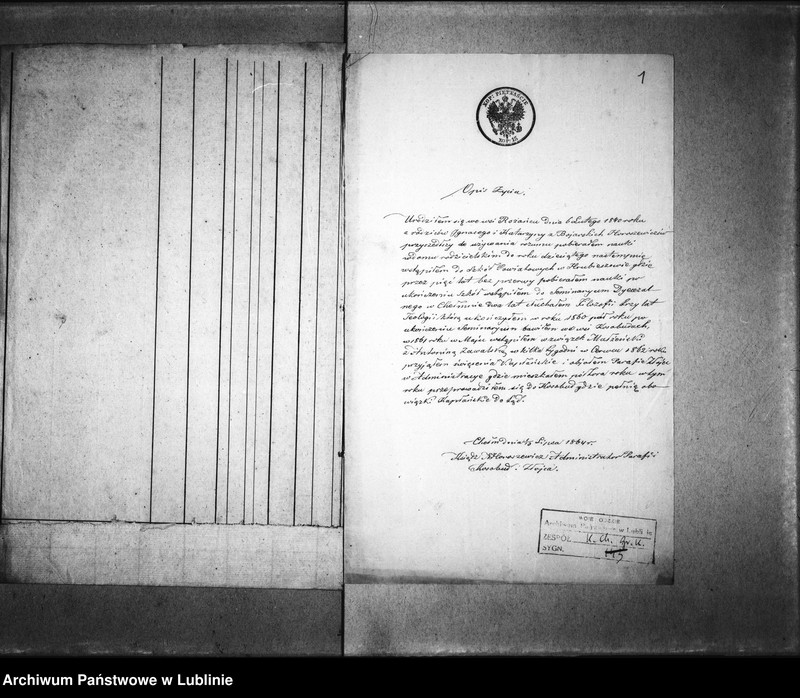 1
KOP: PIĘTNAŚCIE
KOP: 15
Opis Życia.
Urodziłem się we wsi Rożańcu dnia 6 Lutego 1840 roku
z rodziców Ignacego i Katarzyny z Bojarskich Horoszewiczów
przyszedłszy do używania rozumu pobierałem nauki
w domu rodzicielskim do roku dziesiątego następnie
wstąpiłem do szkół Powiatowych w Hrubieszowie gdzie
przez pięć lat bez przerwy pobierałem nauki po
ukończeniu szkół wstąpiłem do Seminaryum Dyecezal-
nego w Chełmie dwa lat słuchałem Filozofii trzy lat
Teologii, którą ukończyłem w roku 1860 pół roku po
ukończeniu Seminaryum bawiłem we wsi Kosobudach,
w 1861 roku w Maju wstąpiłem w związek Małżeński
z Antoniną Zawalską w kilka tygodni w Czerwcu 1862 roku
przyjąłem święcenia Kapłańskie i objąłem Parafię
w Administracye gdzie mieszkałem półtora roku w tym
roku przeprowadziłem się do Kosobud gdzie pełnię obo-
wiązki Kapłańskie do tąd.
Chełm dnia 15 Lipca 1864 r.
Ksiądz Administrator Parafii
Kosobud i
Archiwum Państwowe w Lublinie
ZESPÓŁ K. Ch. Gr. K.
SYGN. 119
Archiwum Państwowe w Lublinie